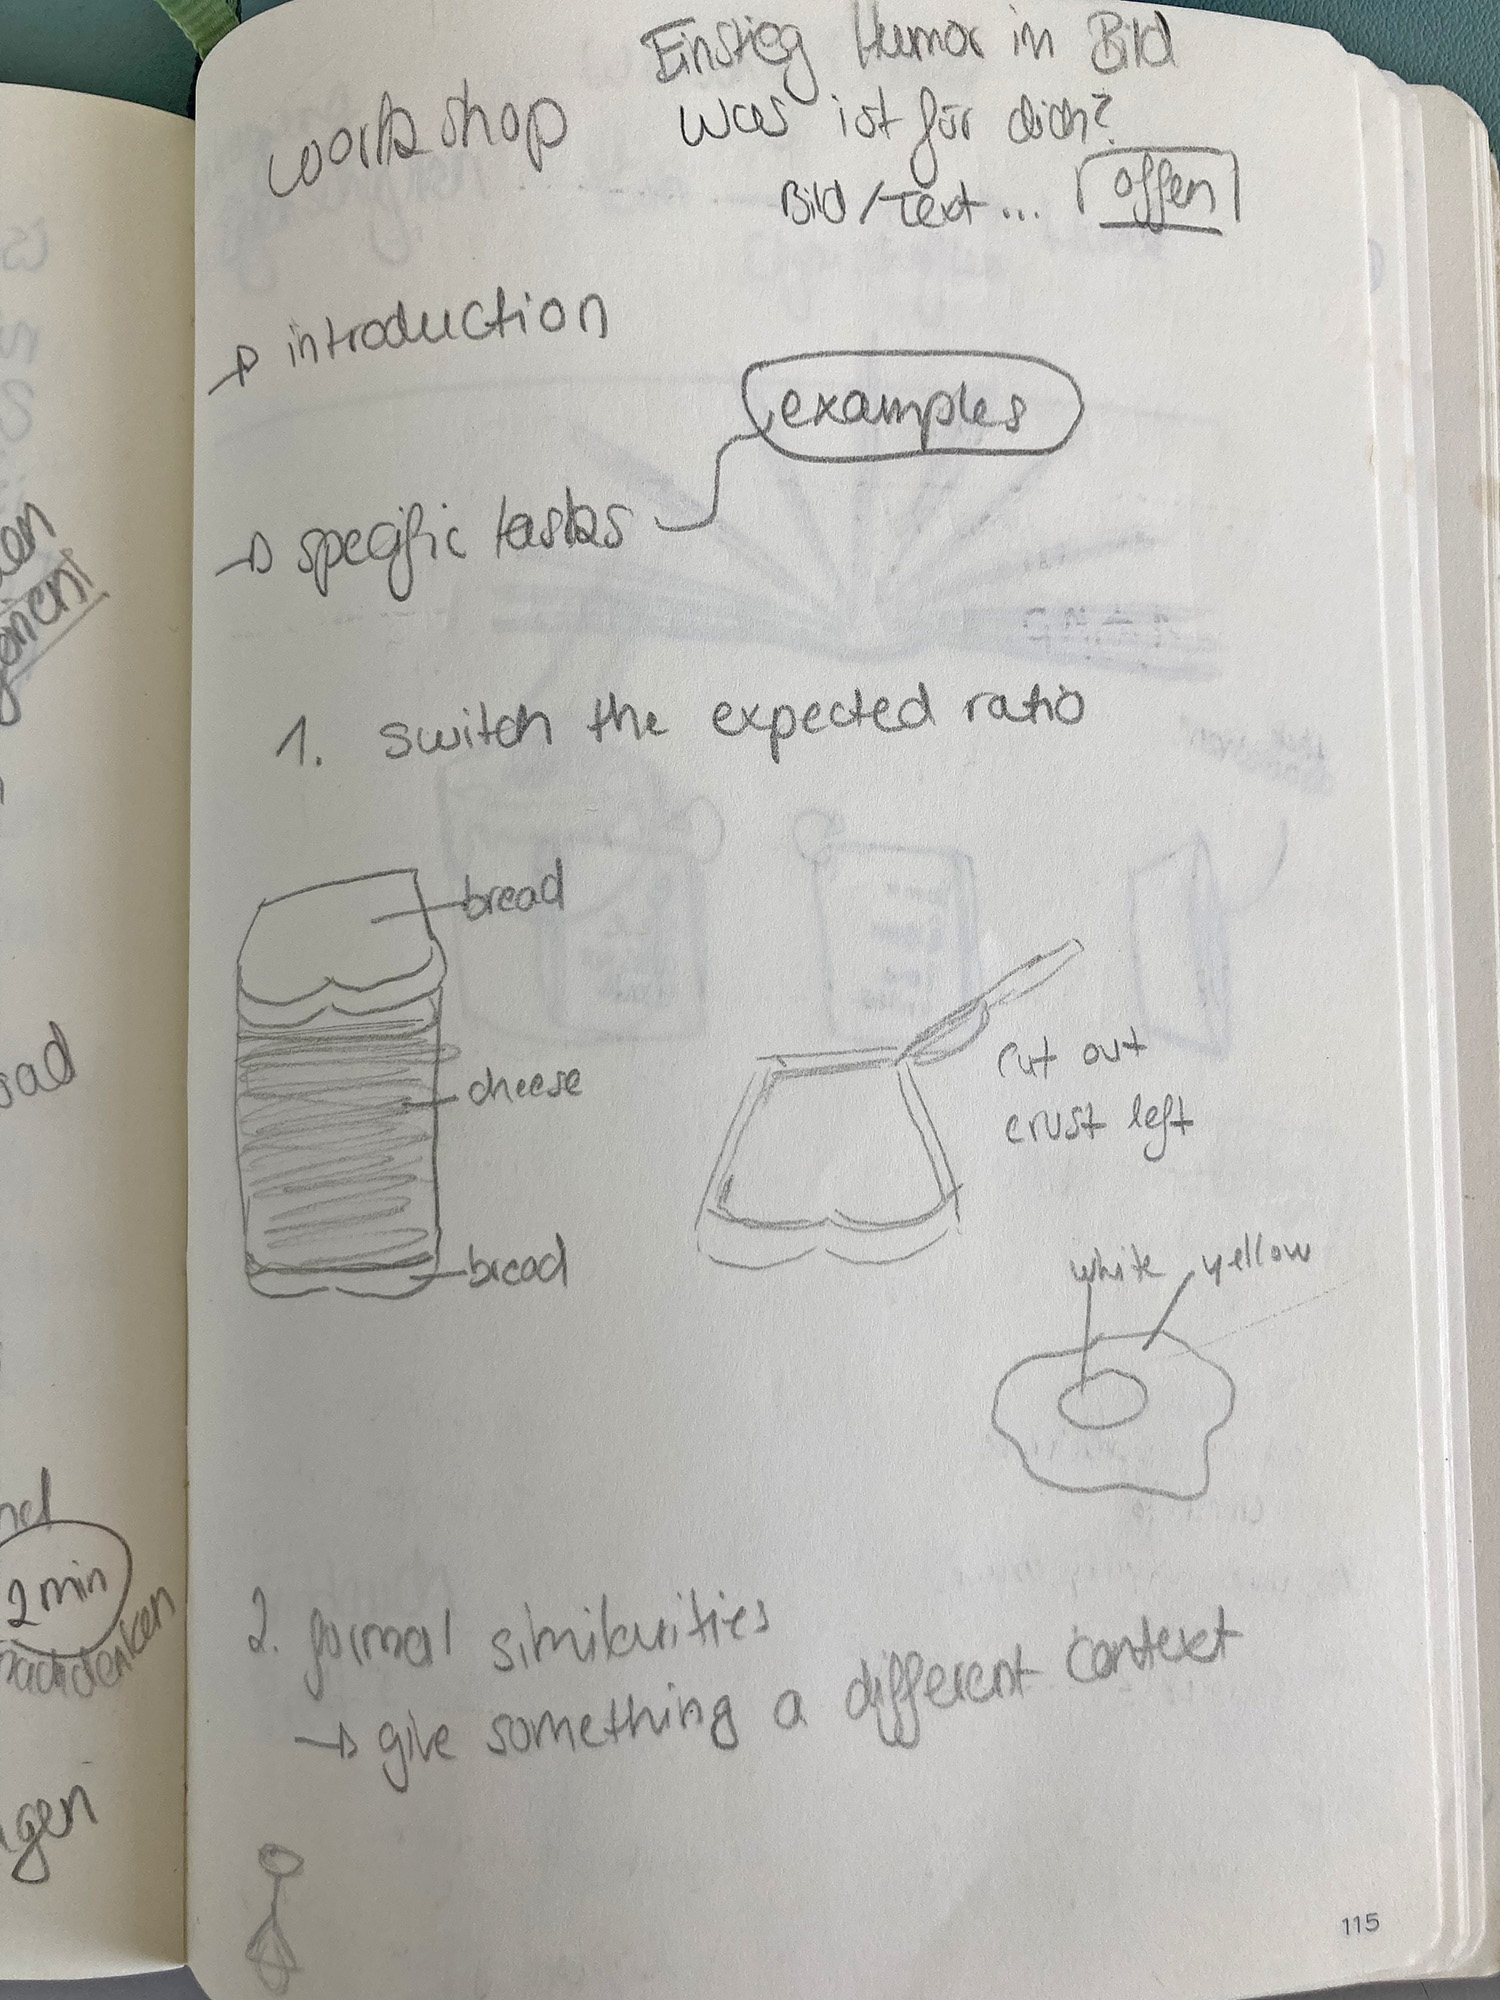 Einstieg Humor in Bild
workshop
Was ist für dich?
Bild/Text... offen
→ introduction
examples
→ specific tasks
1. switch the expected ratio
bread
cheese
bread
cut out
crust left
white yellow
2. formal similarities
→ give something a different context
115
2 min
nachdenken